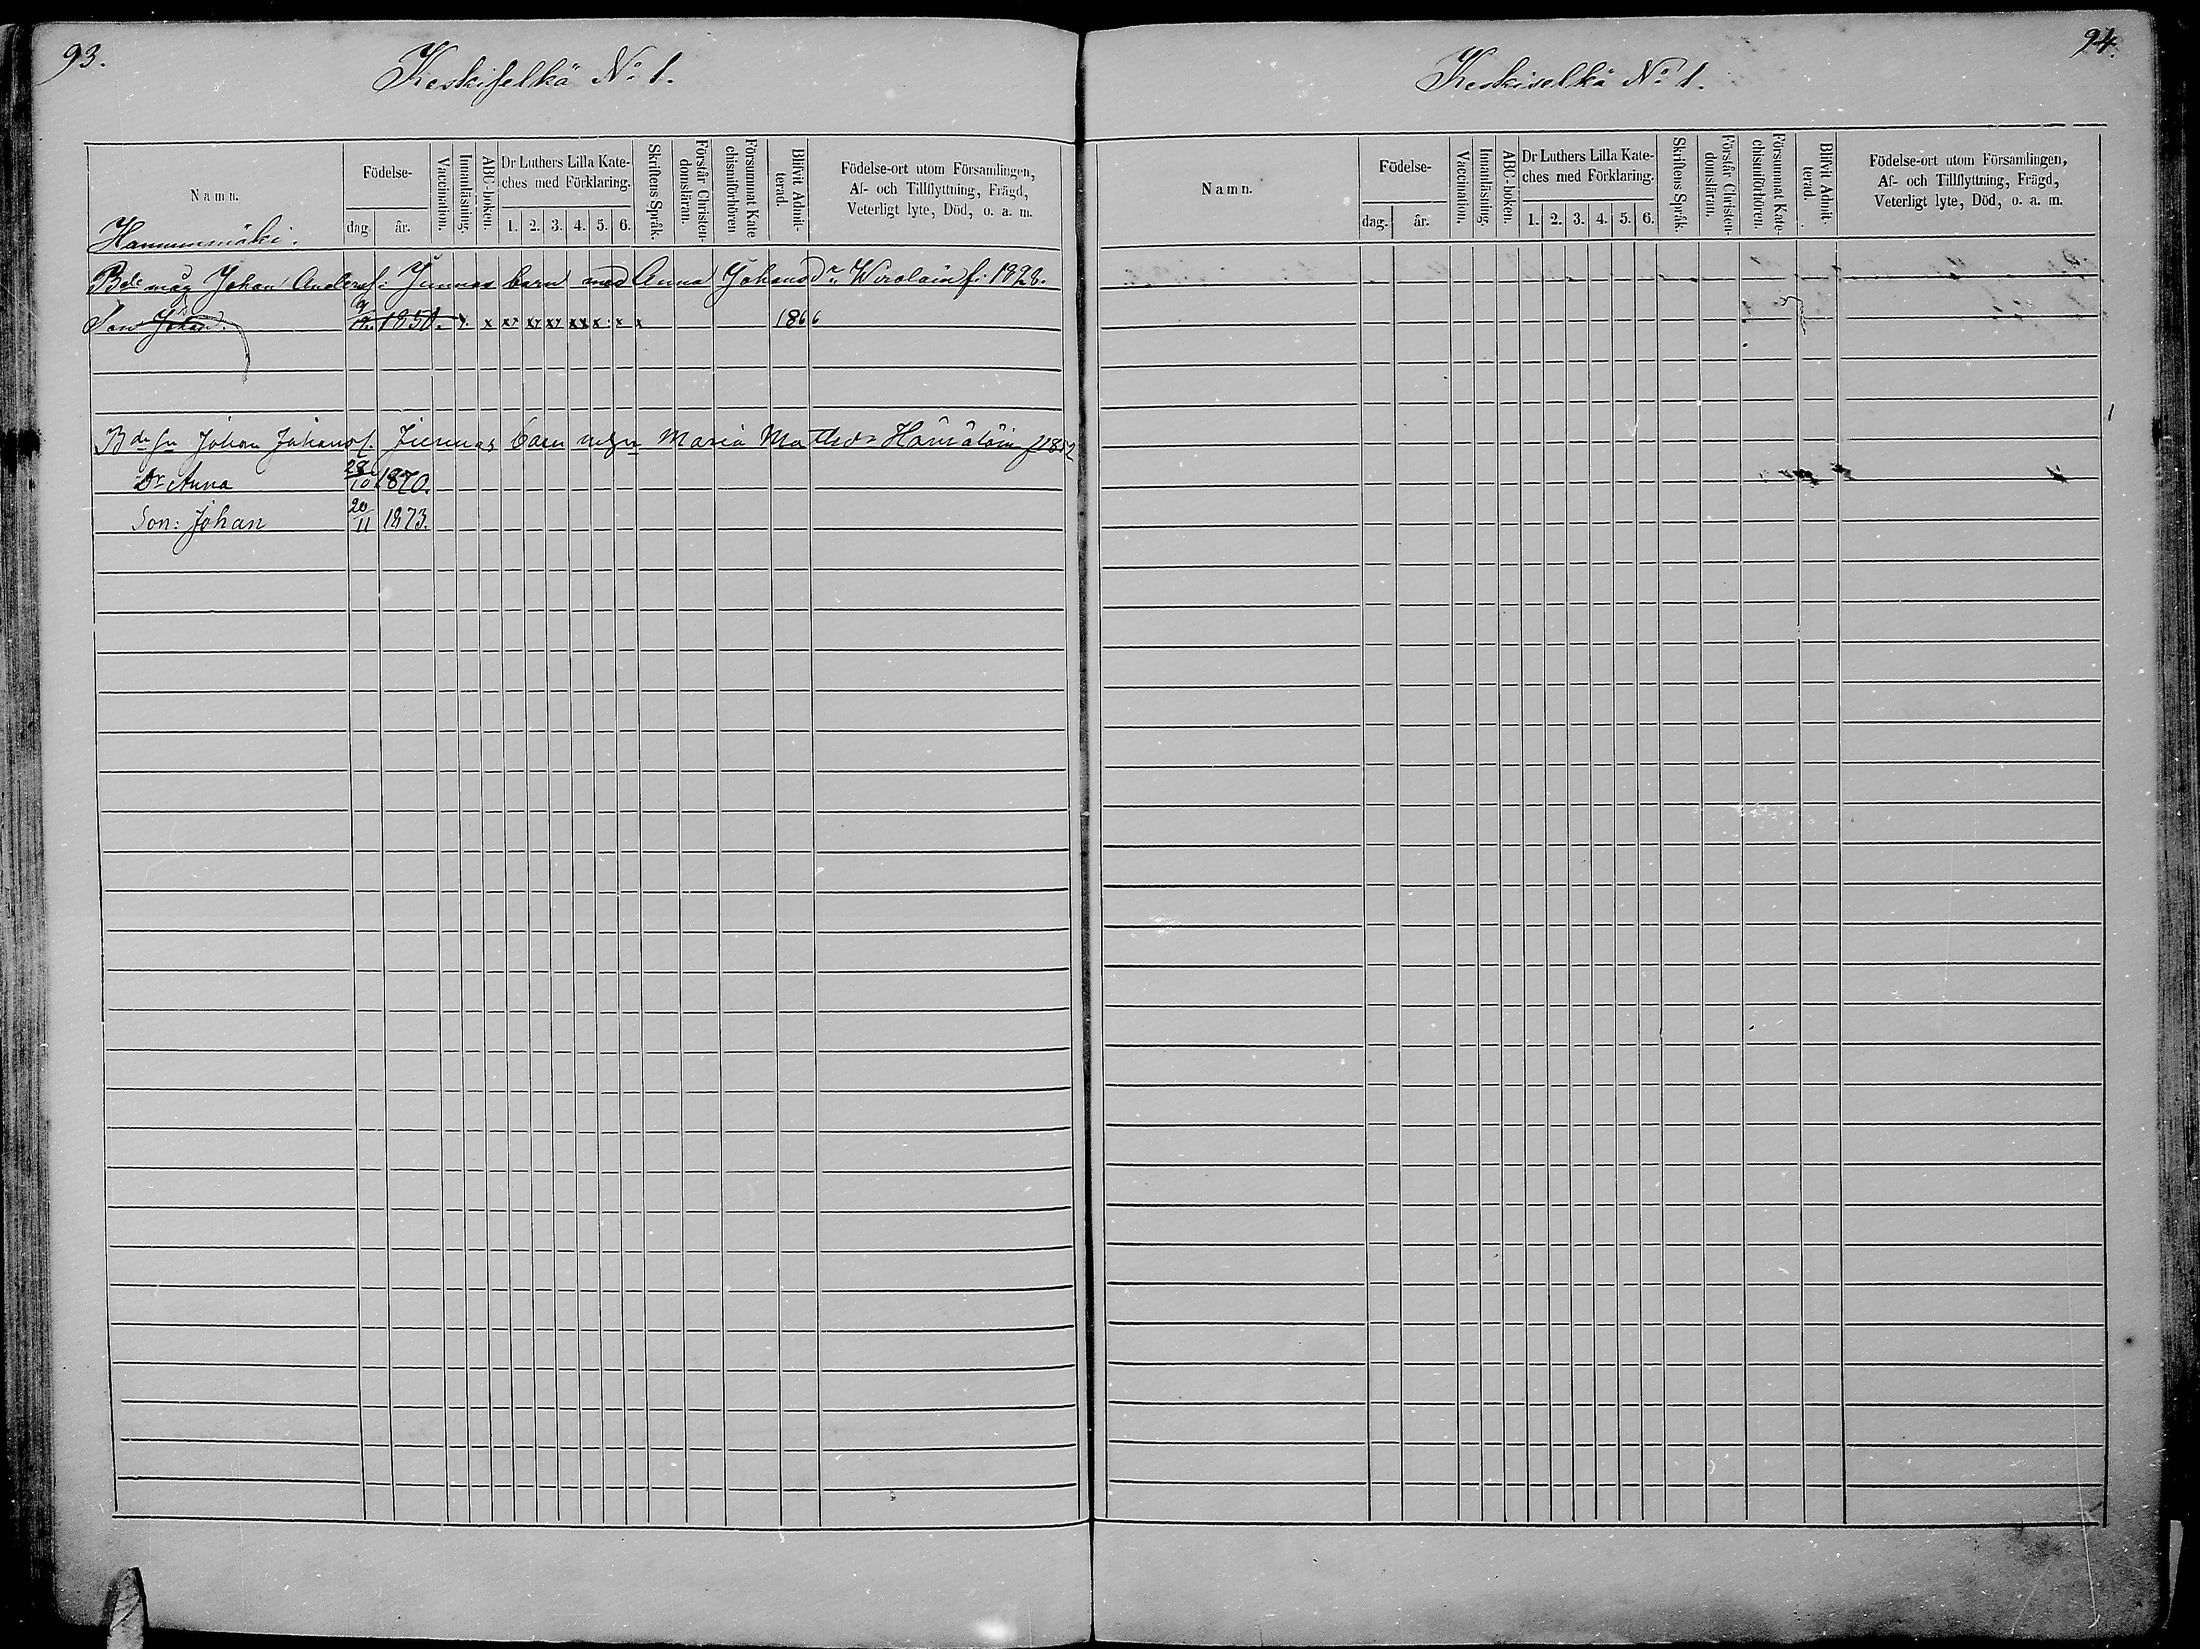 93.
Keskiselkä No 1.
Namn.
Födelse-
dag
år.
Vaccination.
Innanläsning.
ABC-boken.
Dr Luthers Lilla Kate-
ches med Förklaring.
1. 2. 3. 4. 5. 6.
Skriftens Språk.
Förstår Christen-
domsläran.
Försummat Kate
chismiförhören.
Blifvit Admit-
terad.
Födelse-ort utom Församlingen,
Af- och Tillflyttning, Frägd,
Veterligt lyte, Död, o. a. m.
Johan Andersf: Junnas barn med Anna Johansdr
Son Johan. 1850. x x x x x x x x x 1866
Johan Johansf. Junnas barn Maria
Dr Anna 28/10 1870.
Son: Johan 20/11 1873.
94.
Keskiselkä No 1.
Namn.
Födelse-
dag.
år.
Vaccination.
Innanläsning.
ABC-boken.
Dr Luthers Lilla Kate-
ches med Förklaring.
1. 2. 3. 4. 5. 6.
Skriftens Språk.
Förstår Christen-
domsläran.
Försummat Kate-
chismiförhören.
Blifvit Admit-
terad.
Födelse-ort utom Församlingen,
Af- och Tillflyttning, Frägd,
Veterligt lyte, Död, o. a. m.